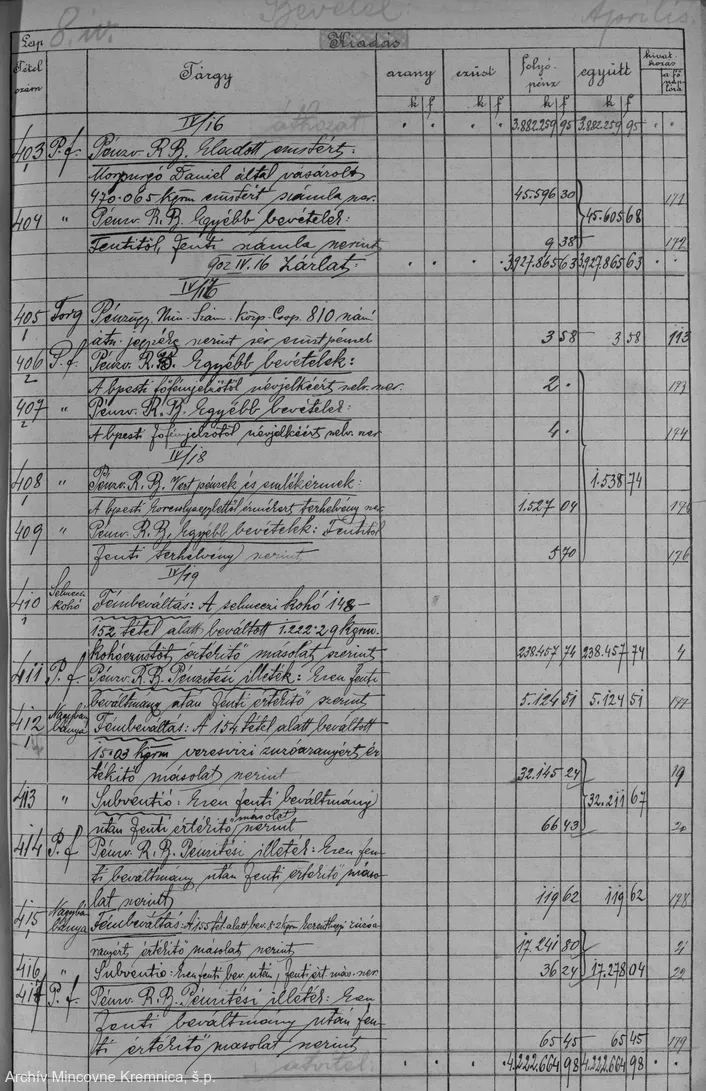 Bevétel. Április.
Lap 8. iv. Kiadás
Tétel szám Tárgy arany ezüst folyó-pénz együtt hivat-kozás a fő naplóra
k f k f k f k f
IV/16 átkozat 3.882.259 95 3.882.259 95
403 P.f. Pénzv. R. B. Eladott ezüstért:
Morpurgo Daniel által vásárolt
470.065 kgrm ezüstért számla szer. 45.596 30 171
404 " Pénzv. R. B. Egyébb bevételek: 45.605 68
Fentitől, fenti számla szerint 9 38 172
902 IV. 16 Zárlat: 3.927.865 63 3.927.865 63
IV/17
405 Forg Pénzügy. Min. Szám. 810 szám
szerint ezüstpénzel 3 58 3 58 113
406 P.f. Pénzv. R. B. Egyébb bevételek:
A bpesti főfémjelzőtől névjelkéért szer. 2 . 173
407 " Pénzv. R. B. Egyébb bevételek:
A bpesti főfémjelzőtől névjelkéért szer 4 . 174
IV/18
408 " Pénzv. R. B. Vert pénzek és emlékérmek: 1.538 74
A bpesti érmékért terhelvény szer 1.527 04
409 " Pénzv. R. B. Egyébb bevételek: Fentitől
fenti terhelvény szerint 5 70 176
IV/19
410 Selmeczi kohó Fémbeváltás: A selmeczi kohó 148-
152 tétel alatt beváltott 1.222.29 kgrm.
kohóezüstöt értékitő másolat szerint 238.457 74 238.457 74 4
411 P.f. Pénzv. R. B. Pénzitési illeték: Ezen fenti
beváltmány után fenti értékitő szerint 5.124 51 5.124 51 177
412 Nagybánya Fémbeváltás: A 154 tétel alatt beváltott
15.03 kgrm veresvizi zuzóaranyért ér-
tékitő másolat szerint 32.145 24 19
413 " Subventió: Ezen fenti beváltmány 32.211 67
után fenti értékitő másolat szerint 66 43 20
414 P.f. Pénzv. R. B. Pénzitési illeték: Ezen fen-
ti beváltmány után fenti értékitő máso-
lat szerint 119 62 119 62 178
415 Nagybánya Fémbeváltás: A 155 tét. alatt bev. 8.2 kgrm zúzóa-
ranyért értékitő másolat szerint 17.241 80 21
416 " Subventio: Ezen fenti bev. után fenti ért. más. szer. 36 24 17.278 04 22
417 P.f. Pénzv. R. B. Pénzitési illeték: Ezen
fenti beváltmány után fen-
ti értékitő másolat szerint 65 45 65 45 179
átvitel 4.222.664 98 4.222.664 98
Archív Mincovne Kremnica, š.p.